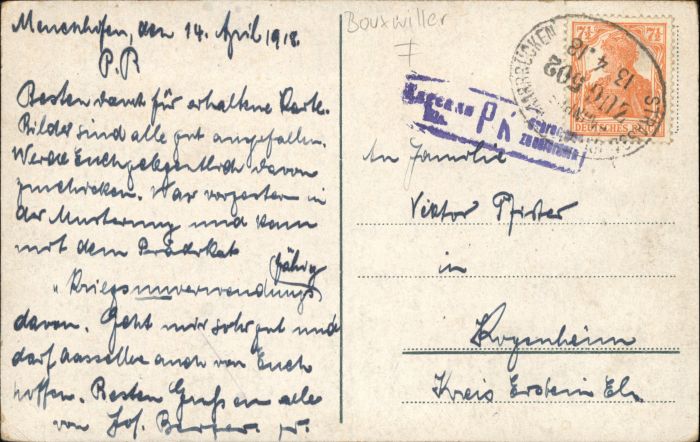 Menchhofen, den 14. April 1918.
P.P
Besten dank für erhaltene Karte.
Bilder sind alle gut angefallen.
Werde Euch gelegentlich davon
zuschicken. War vorgestern in
der Musterung und kam
mit dem Prädikat
„Kriegsunverwendungsfähig
davon. Geht mir sehr gut und
darf dasselbe auch von Euch
hoffen. Besten Gruß an alle
von Jos. Berger jr.
Bouxwiller
SAARBRÜCKEN
ZUG 502
13 4.18
STRASSBURG
7½ 7½
DEUTSCHES REICH
An Familie
Viktor Pfister
in
Kogenheim
Kreis Erstein Els.